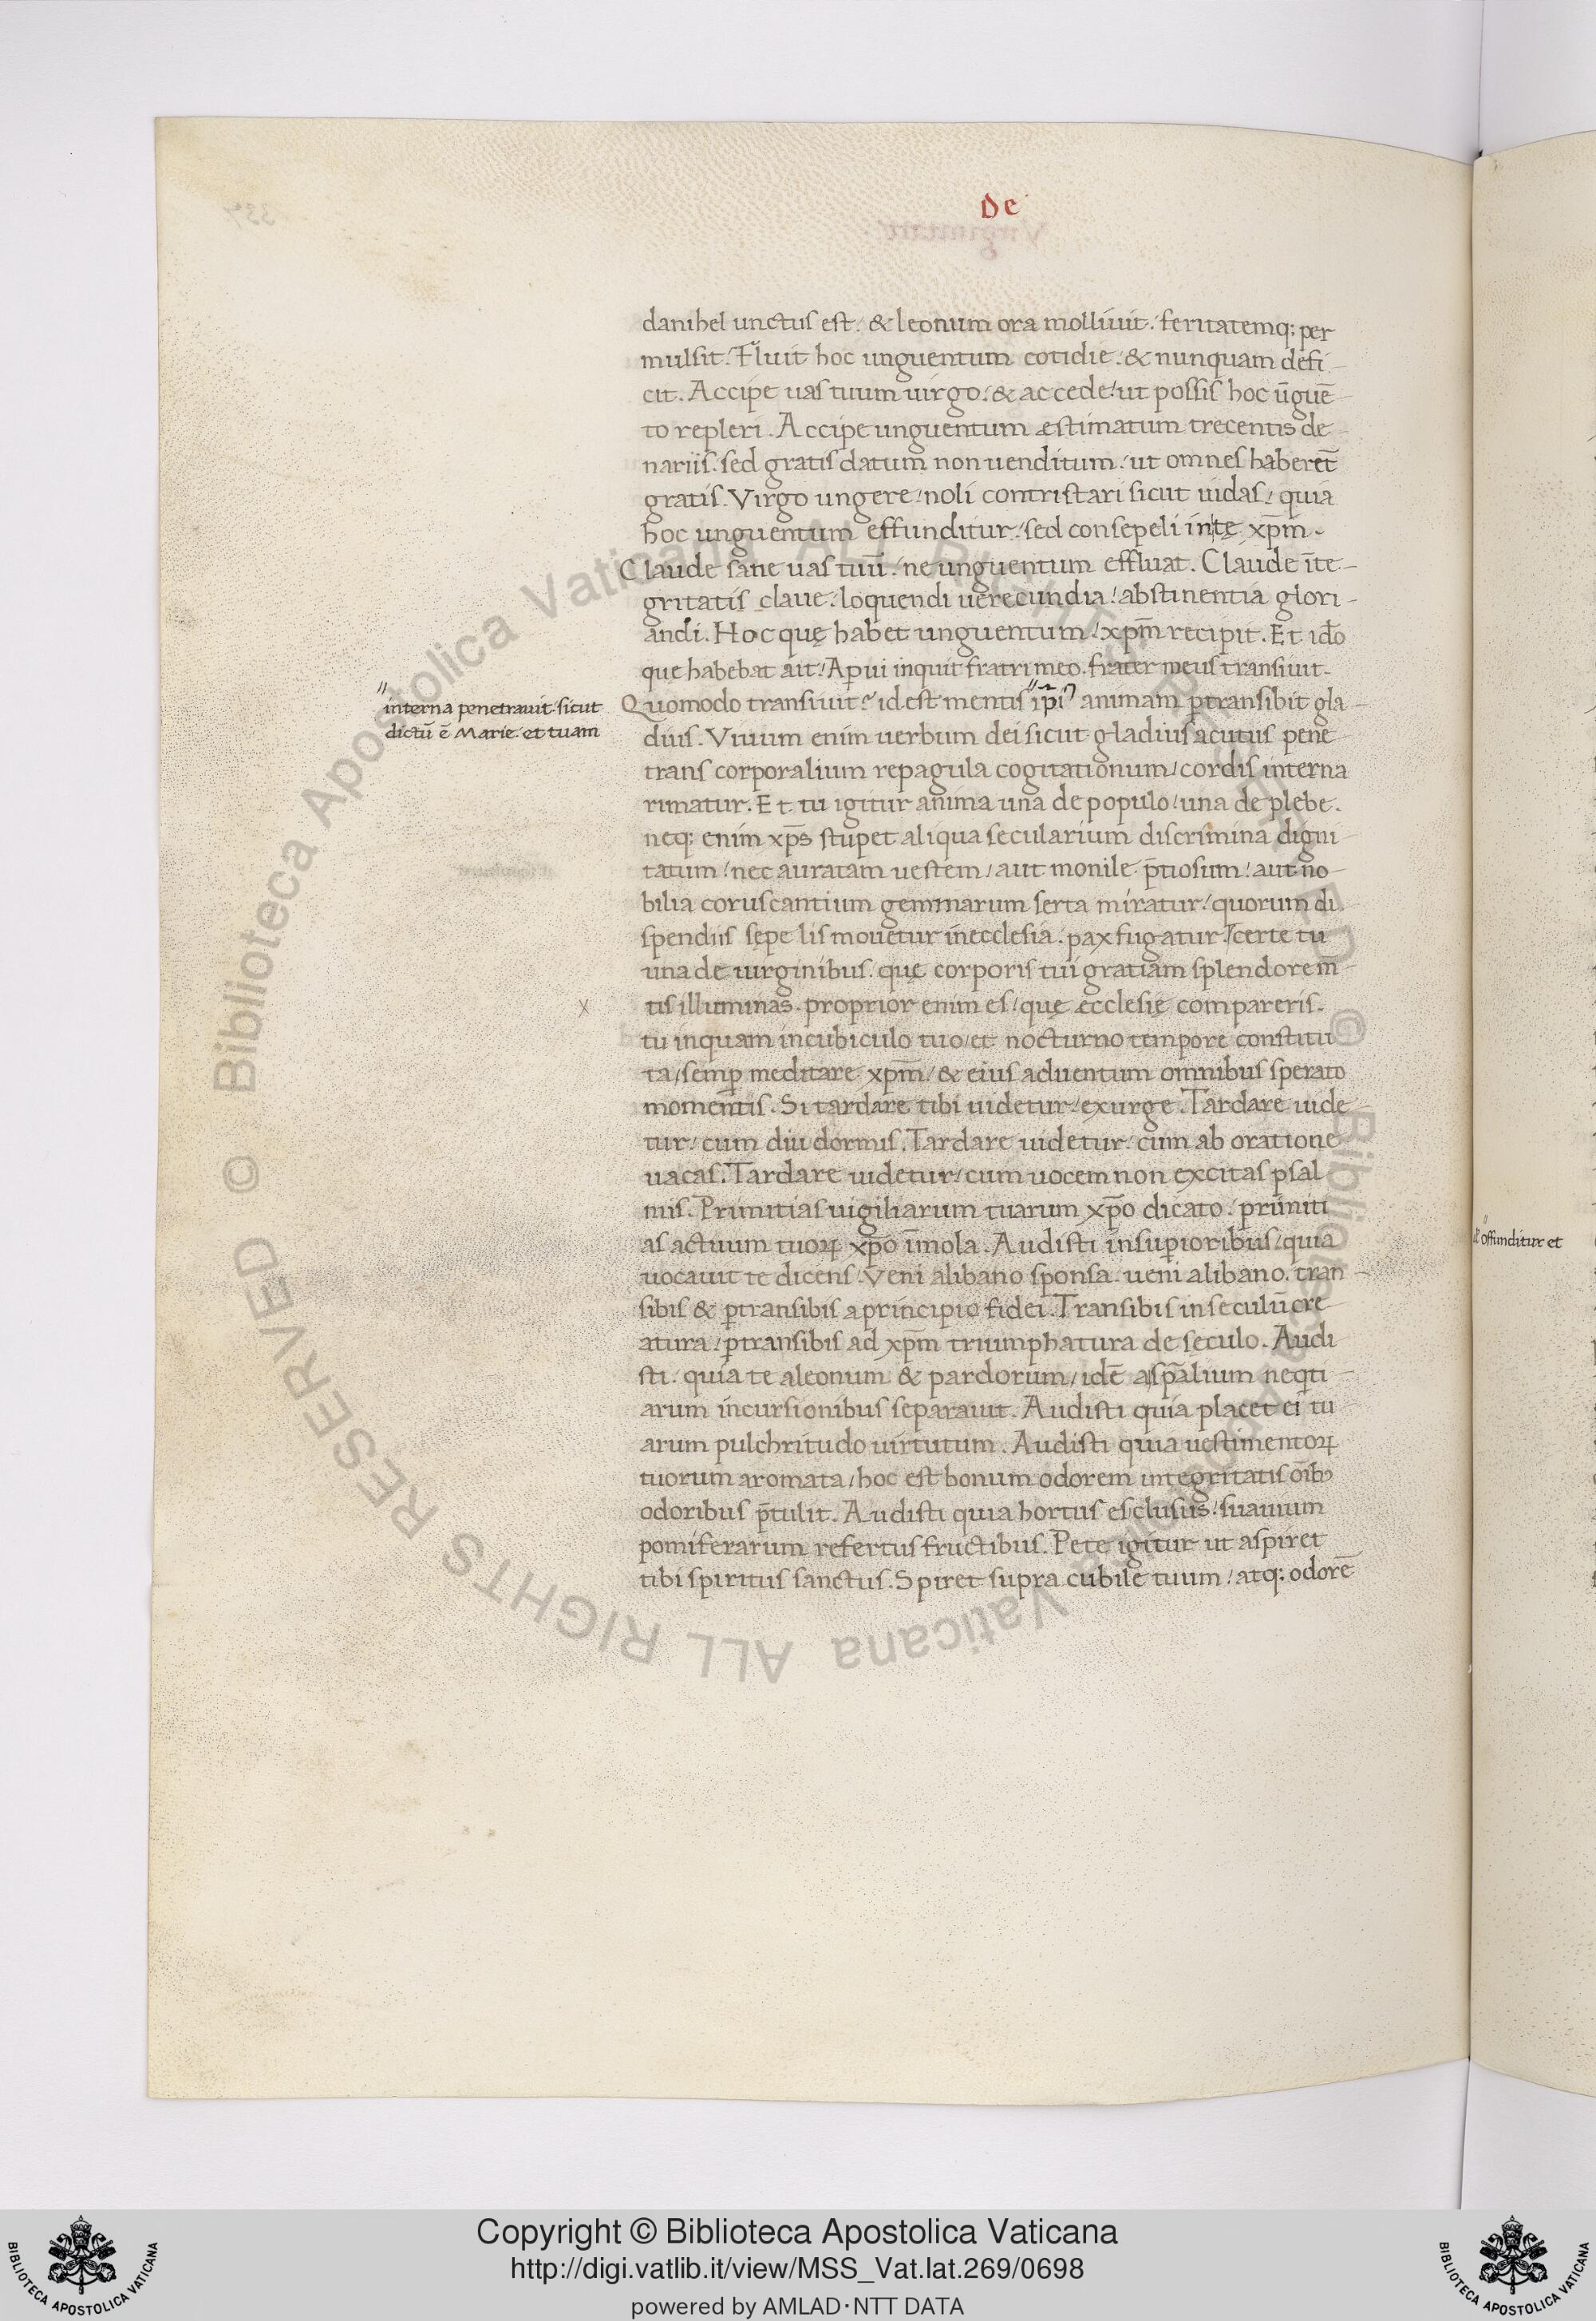 De
danihel unctus est. & leonum ora molliuit. feritatemq; per
mulsit. Fluit hoc unguentum cotidie. & nunquam defi
cit. Accipe uas tuum uirgo. & accede ut possis hoc ūguē
to repleri. Accipe unguentum ęstimatum trecentis de
nariis. sed gratis datum non uenditum. ut omnes haberēt
gratis. Virgo ungere/noli contristari sicut iudas/quia
hoc unguentum effunditur. sed consepeli in te xp̄m.
Claude sane uas tuū. ne unguentum effluat. Claude īte
gritatis claue. loquendi uerecundia. abstinentia glori
andi. Hoc quę habet unguentum. xp̄m recipit. Et ido
que habebat ait. Aperui inquit fratri meo. frater meus transiuit.
Quomodo transiuit? id est mentis ip̄i animam ꝑtransibit gla
interna penetrauit. sicut
dictū ē Marie et tuam
dius. Viuum enim uerbum dei sicut gladius acutus pene
trans corporalium repagula cogitationum/cordis interna
rimatur. Et tu igitur anima una de populo/una de plebe.
neq; enim xp̄s stupet aliqua secularium discrimina digni
tatum/nec auratam uestem/aut monile p̄tiosum/aut no
bilia coruscantium gemmarum serta miratur/quorum di
spendiis sępe lis mouetur in ecclesia. pax fugatur. certe tu
una de uirginibus. quę corporis tui gratiam splendore m
tis illuminas. proprior enim es/quę ecclesię compareris.
tu inquam in cubiculo tuo/et nocturno tempore constitu
ta/semꝑ meditare xp̄m/& eius aduentum omnibus sperato
momentis. Si tardare tibi uidetur/exurge. Tardare uide
tur/cum diu dormis. Tardare uidetur/cum ab oratione
uacas. Tardare uidetur/cum uocem non excitas psal
mis. Primitias uigiliarum tuarum xp̄o dicato. primiti
as actuum tuoꝝ xp̄o īmola. Audisti in suꝑioribus/quia
uocauit te dicens. Veni a libano sponsa. ueni a libano. tran
sibis & ꝑtransibis a principio fidei. Transibis in seculū cre
atura/ꝑtransibis ad xp̄m triumphatura de sęculo. Audi
sti. quia te a leonum & pardorum/id ē a sp̄alium neqti
arum incursionibus separauit. Audisti quia placet ei tu
arum pulchritudo uirtutum. Audisti quia uestimentoꝝ
tuorum aromata/hoc est bonum odorem integritatis oīb;
odoribus p̄tulit. Audisti quia hortus es clusus/suauium
pomiferarum refertus fructibus. Pete igitur ut aspiret
tibi spiritus sanctus. Spiret supra cubile tuum/atq; odorē
offunditur et
Copyright © Biblioteca Apostolica Vaticana
http://digi.vatlib.it/view/MSS_Vat.lat.269/0698
powered by AMLAD·NTT DATA
BIBLIOTECA APOSTOLICA VATICANA
BIBLIOTECA APOSTOLICA VATICANA
© Biblioteca Apostolica Vaticana ALL RIGHTS RESERVED
© Biblioteca Apostolica Vaticana ALL RIGHTS RESERVED